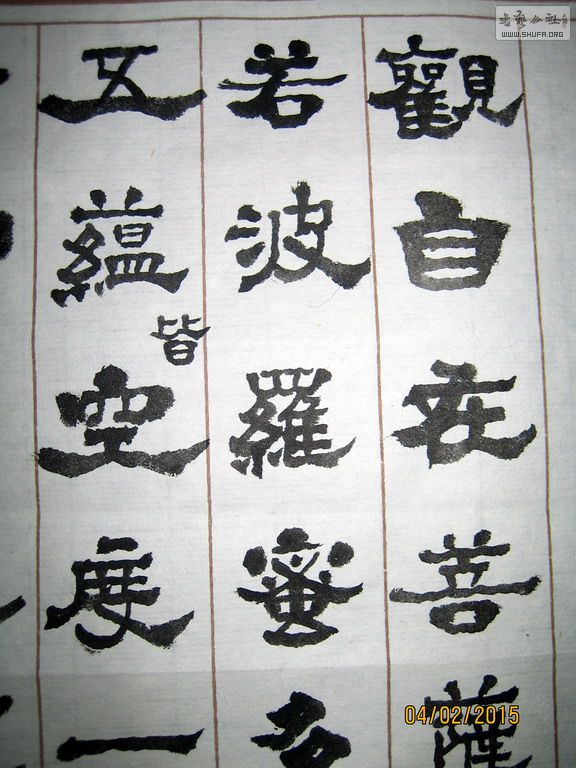 觀自在菩薩
若波羅蜜多
五蘊皆空度一
书艺公社
WWW.SHUFA.ORG
04/02/2015